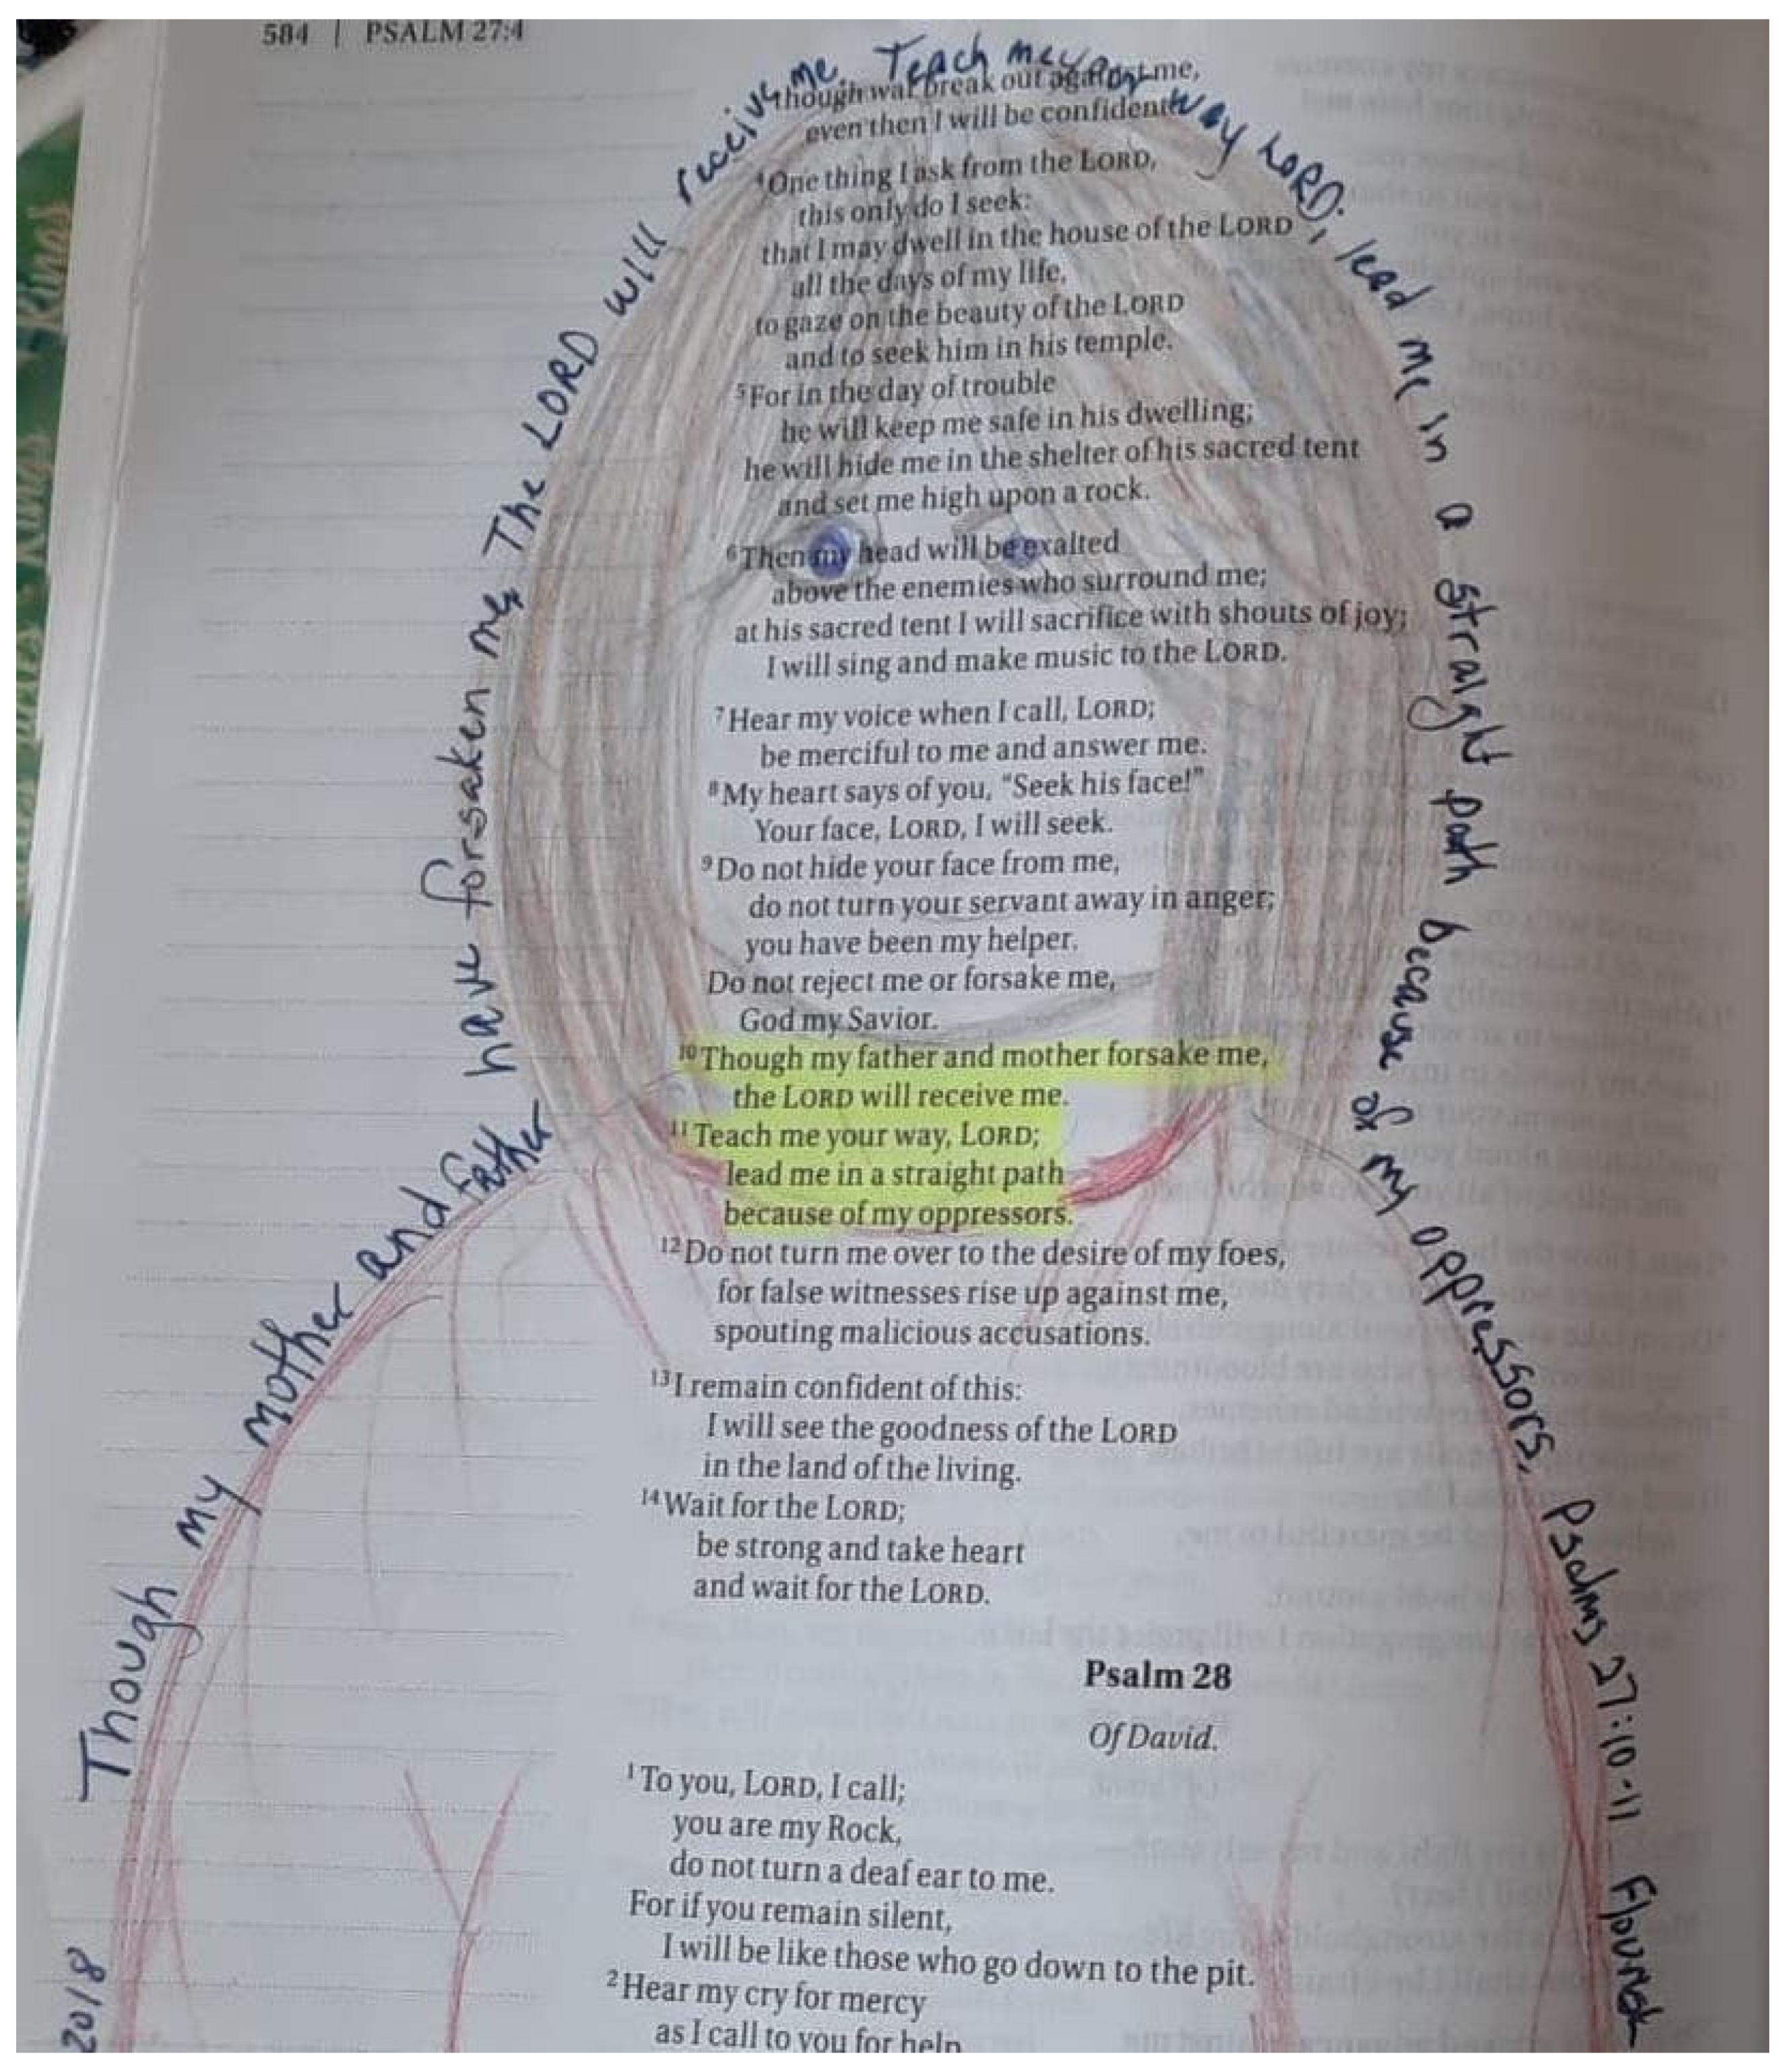 584 | PSALM 27:4
though war break out against me,
even then I will be confident.
4 One thing I ask from the LORD,
this only do I seek:
that I may dwell in the house of the LORD
all the days of my life,
to gaze on the beauty of the LORD
and to seek him in his temple.
5 For in the day of trouble
he will keep me safe in his dwelling;
he will hide me in the shelter of his sacred tent
and set me high upon a rock.
6 Then my head will be exalted
above the enemies who surround me;
at his sacred tent I will sacrifice with shouts of joy;
I will sing and make music to the LORD.
7 Hear my voice when I call, LORD;
be merciful to me and answer me.
8 My heart says of you, "Seek his face!"
Your face, LORD, I will seek.
9 Do not hide your face from me,
do not turn your servant away in anger;
you have been my helper.
Do not reject me or forsake me,
God my Savior.
10 Though my father and mother forsake me,
the LORD will receive me.
11 Teach me your way, LORD;
lead me in a straight path
because of my oppressors.
12 Do not turn me over to the desire of my foes,
for false witnesses rise up against me,
spouting malicious accusations.
13 I remain confident of this:
I will see the goodness of the LORD
in the land of the living.
14 Wait for the LORD;
be strong and take heart
and wait for the LORD.
Psalm 28
Of David.
1 To you, LORD, I call;
you are my Rock,
do not turn a deaf ear to me.
For if you remain silent,
I will be like those who go down to the pit.
2 Hear my cry for mercy
as I call to you for help
Though my mother and father have forsaken me, The LORD will receive me. Teach me your way LORD; lead me in a straight path because of my oppressors. Psalms 27:10-11
2018